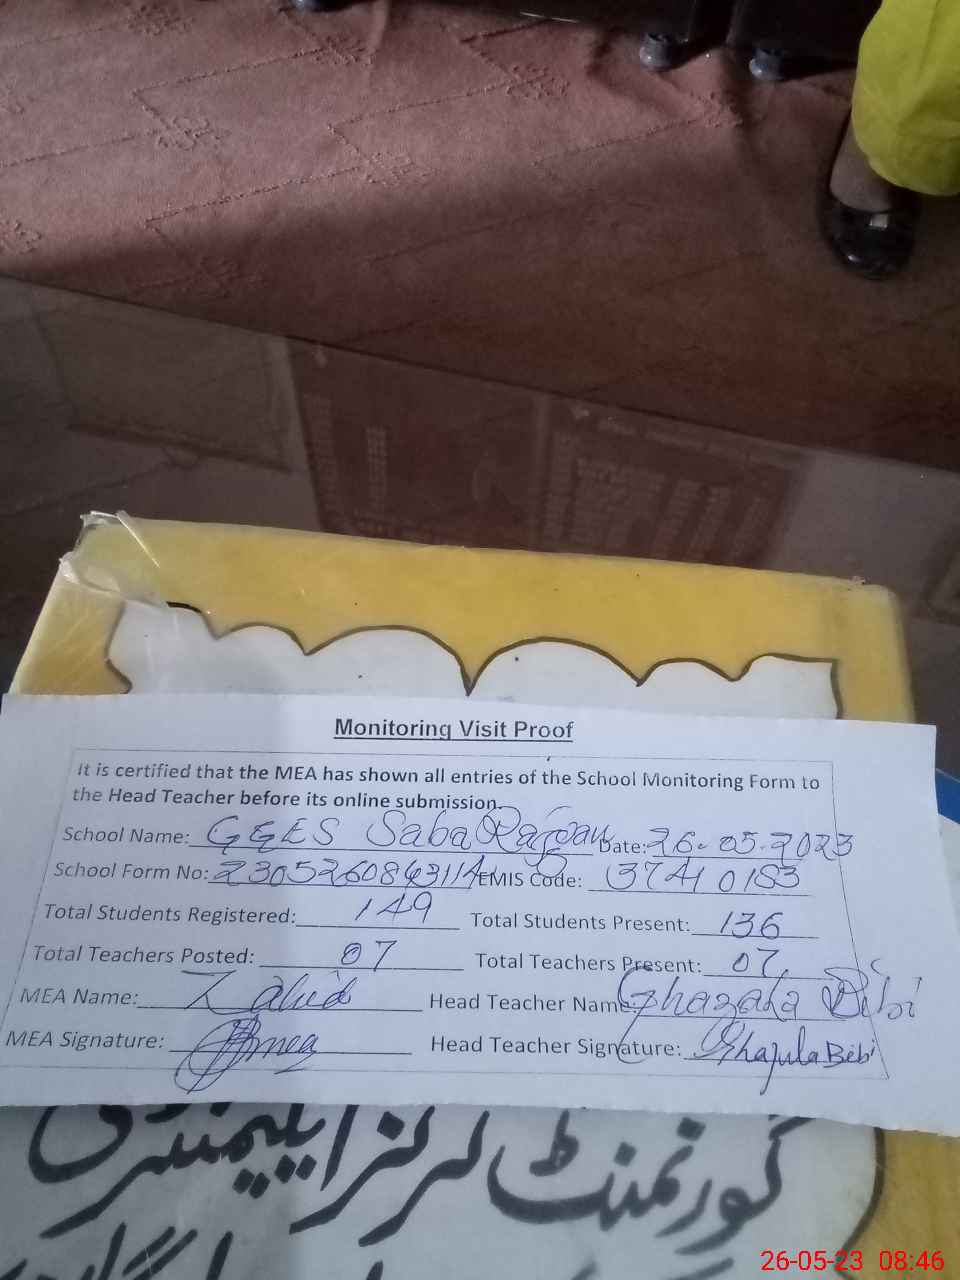 Monitoring Visit Proof
It is certified that the MEA has shown all entries of the School Monitoring Form to
the Head Teacher before its online submission.
School Name: GGES Saba Rajgan Date: 26.05.2023
School Form No: 2305260863114 EMIS Code: 37410183
Total Students Registered: 149 Total Students Present: 136
Total Teachers Posted: 07 Total Teachers Present: 07
MEA Name: Zahid Head Teacher Name: Ghazala Bibi
MEA Signature: Head Teacher Signature: Ghazula Bibi
گورنمنٹ گرلز ایلیمنٹری
26-05-23 08:46